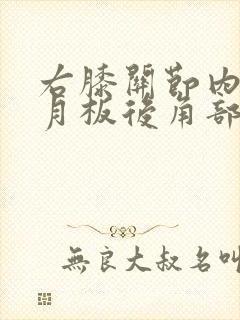 右膝關節內
月板後角部
無良大叔名叫